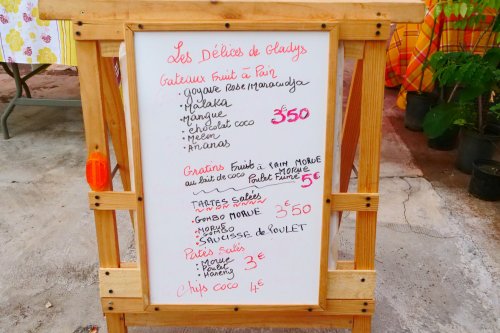 Les Délices de Gladys
Gateaux Fruit à Pain
• Goyave Rose/Maracudja
• Malaka
• Mangue
• chocolat coco 3€50
• Melon
• Ananas
Gratins Fruit à PAIN MORUE
au lait de coco MORUE
Poulet Fumé 5€
TARTES Salées
• GOMBO MORUE 3€50
• MORUE
• GOMBO
• SAUCISSE de POULET
Patés Salés
• Morue
• Poulet 3€
• Hareng
Chips coco 4€